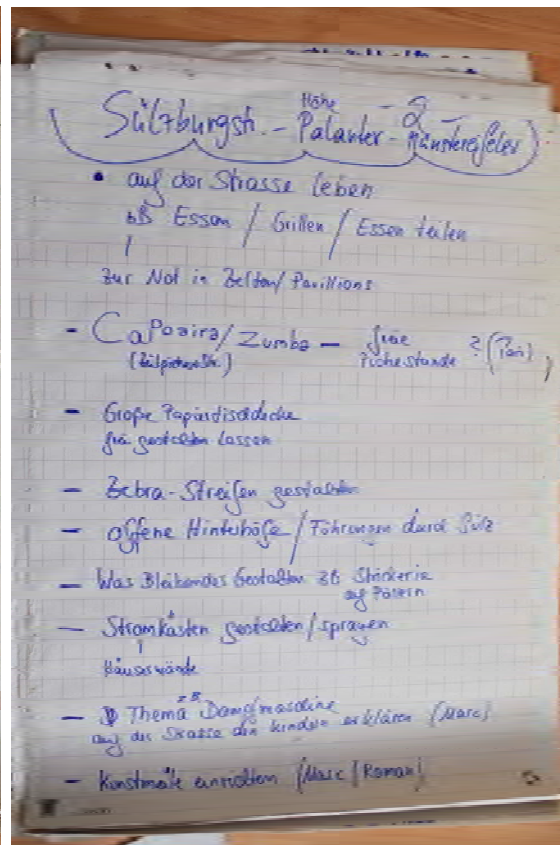 Höhe
Sülzburgstr. - Palanter - Münstereifeler
• auf der Strasse leben
zB Essen / Grillen / Essen teilen
zur Not in Zelten / Pavillions
- Capoeira / Zumba - freie ? (Pan)
(Zülpicherstr.)
- Große Papiertischdecke
frei gestalten lassen
- Zebra-Streifen gestalten
- offene Hinterhöfe / Führungen durch Sülz
- Was Bleibendes Gestalten zB Stickerie
auf Pollern
- Stromkästen gestalten / sprayen
Häuserwände
- Thema zB Dampfmaschine
auf der Strasse den Kindern erklären (Marc)
- Kunstmeile einrichten (Marc / Roman)